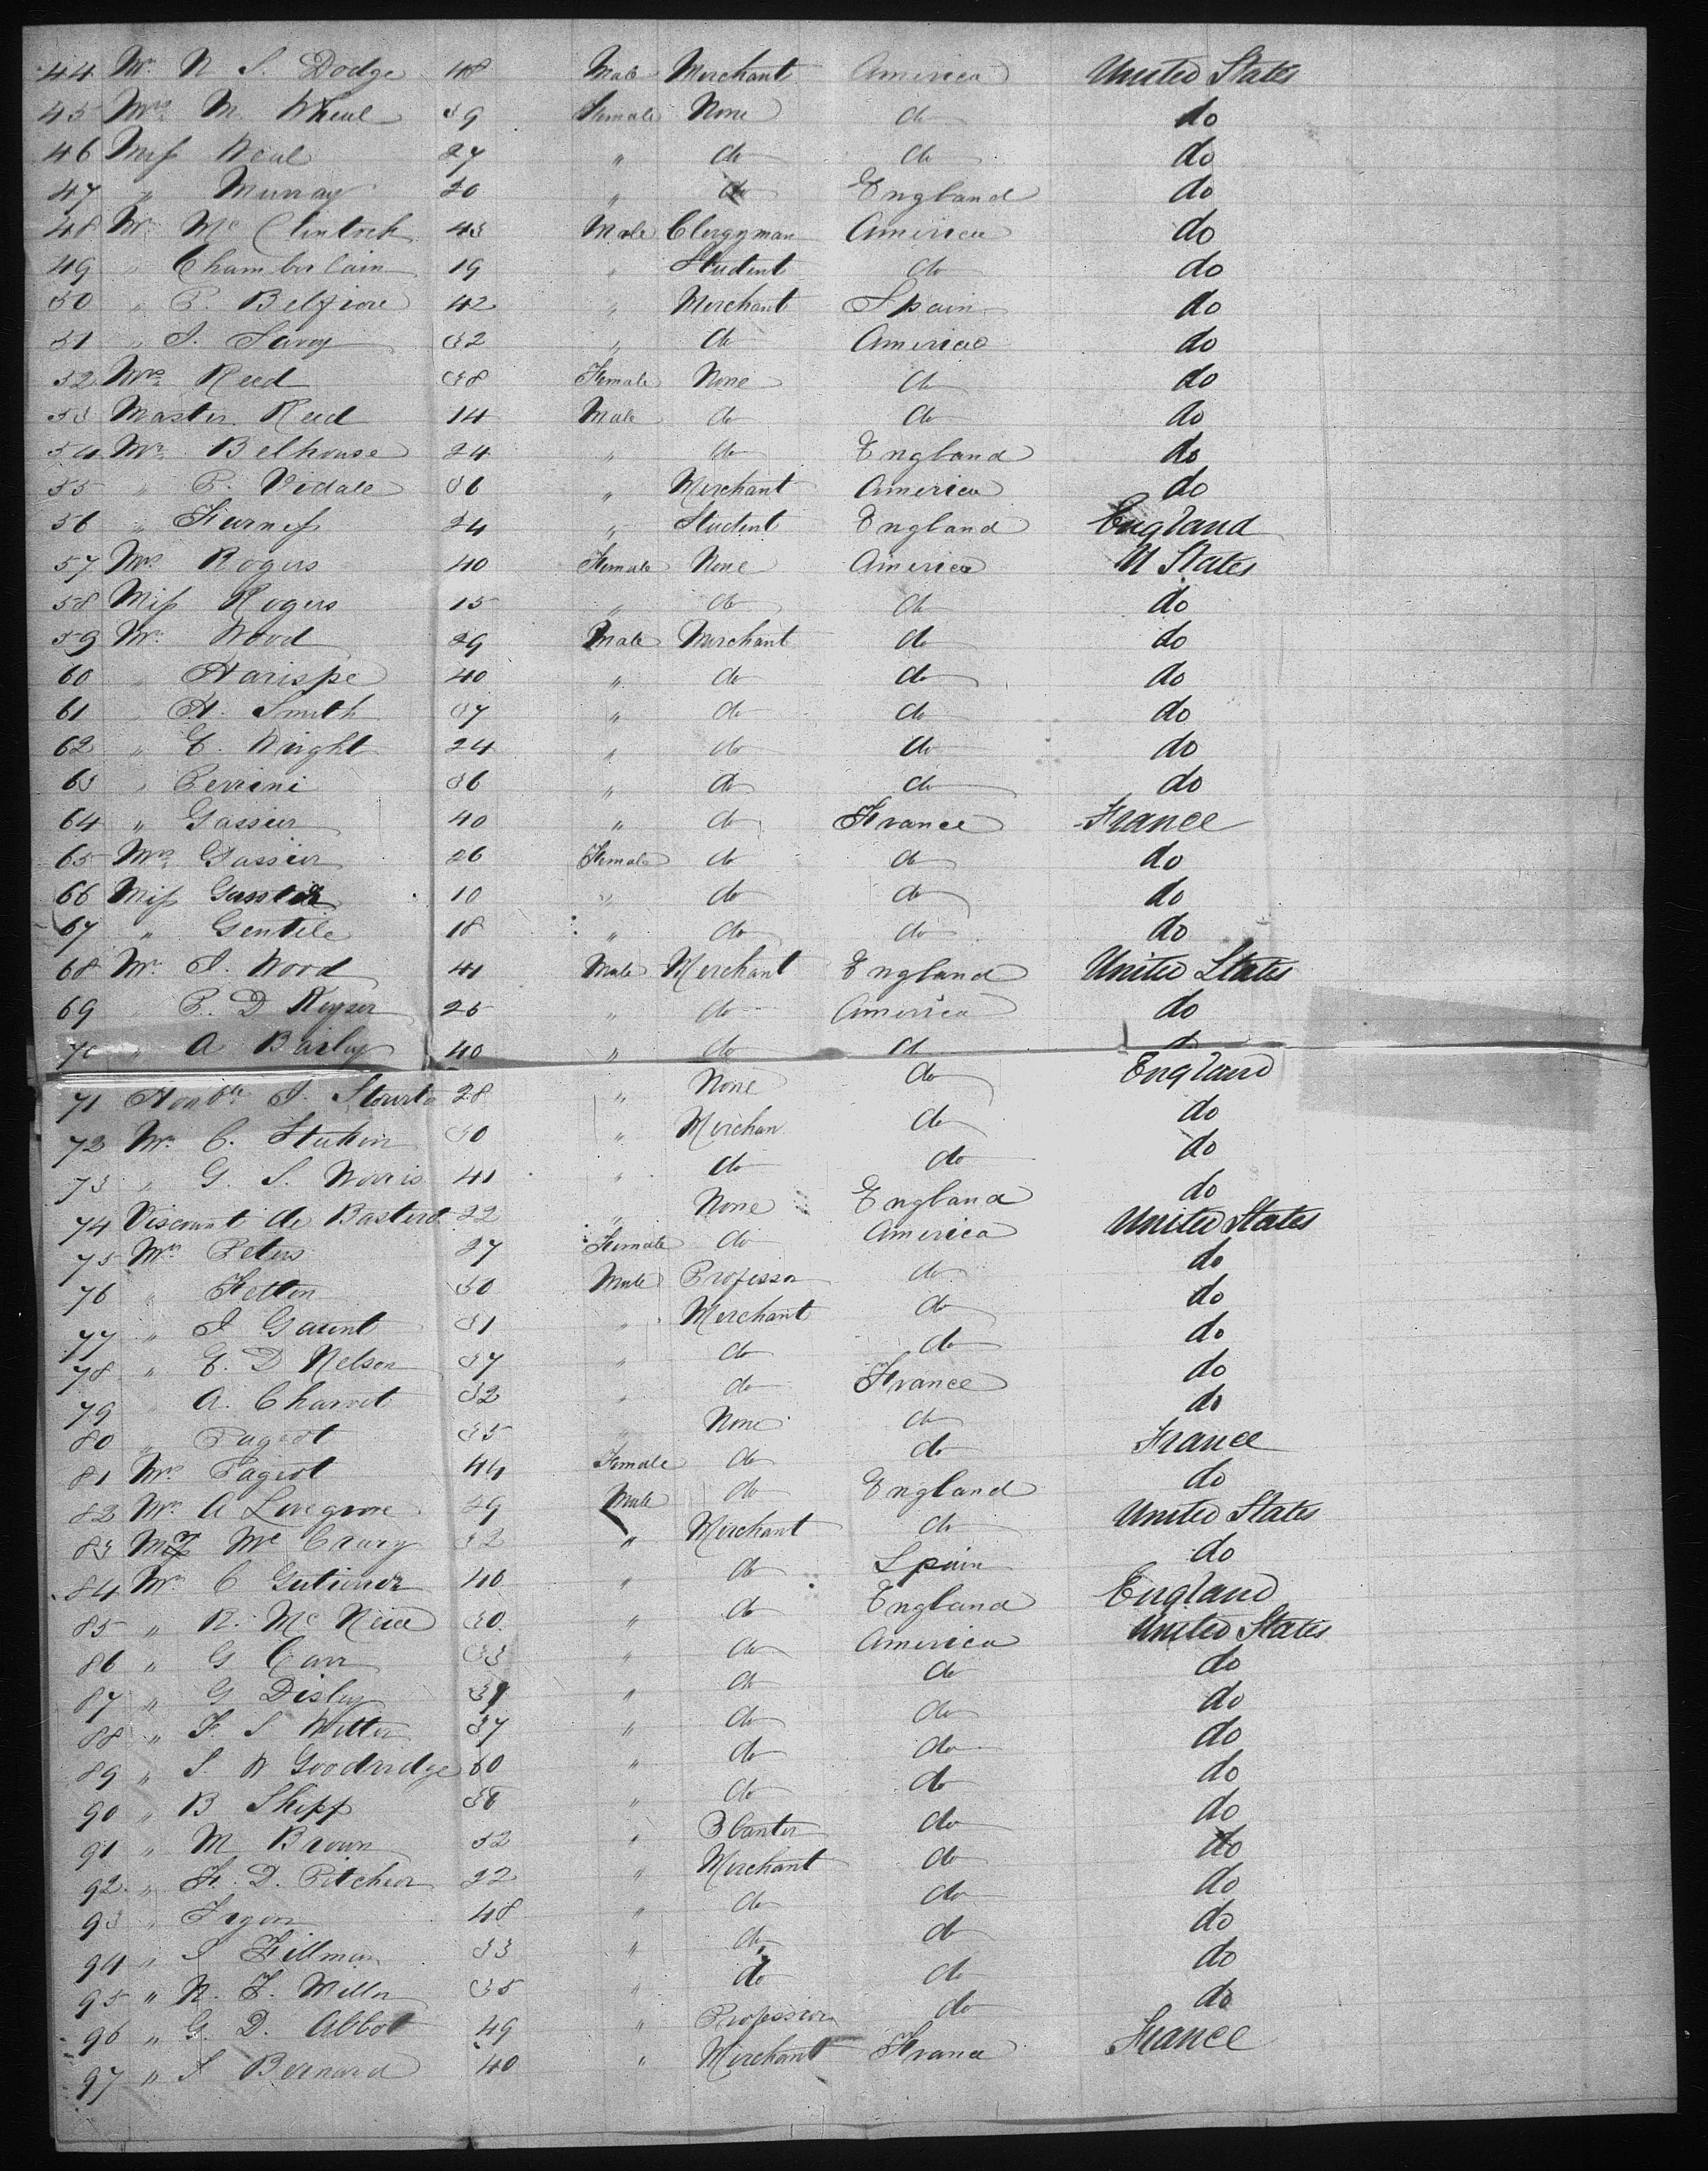 44 Mr. N S. Dodge 48 Male Merchant America United States
45 Mrs M. Wheal 39 Female None do do
46 Miss Weal 27 " do do do
47 " Murray 20 " do England do
48 Mr. Mc Clintock 43 Male Clergyman America do
49 " Chamberlain 19 " Student do do
50 " P. Belfiore 42 " Merchant Spain do
51 " S. Savoy 32 " do America do
52 Mrs Reed 38 Female None do do
53 Master Reed 14 Male do do do
54 Mr. Belhouse 24 " do England do
55 " P. Vidale 36 " Merchant America do
56 " Furness 24 " Student England England
57 Mrs Rogers 40 Female None America U States
58 Miss Rogers 15 " do do do
59 Mr. Wood 29 Male Merchant do do
60 " Harispe 40 " do do do
61 " H. Smith 37 " do do do
62 " E. Wright 24 " do do do
63 " Perrini 36 " do do do
64 " Gassier 40 " do France France
65 Mrs Gassier 26 Female do do do
66 Miss Gassier 10 " do do do
67 " Gentile 18 " do do do
68 Mr. J. Wood 41 Male Merchant England United States
69 " P. D Keyser 25 " do America do
70 " A Bailey 40 " do d d
71 Honble. J. Stourto 28 " None do England
72 Mr. C. 30 " Merchan do do
73 " G. S. Norris 41 " do do do
74 Viscount de Basterot 22 " None England do
75 Mrs Peters 27 Female do America United States
76 " Felton 50 Male Professor do do
77 " J Gaunt 31 " Merchant do do
78 " E. D Nelson 37 " do do do
79 " A. Charvet 32 " do France do
80 " Pageot 35 " None do do
81 Mrs Pageot 44 Female do do France
82 Mr. A Lovegrove 49 Male do England do
83 Mr Mc Crury 32 " Merchant do United States
84 Mr. C Gutierrez 40 " do Spain do
85 " R. Mc Neice 30 " do England England
86 " G Carr 33 " do America United States
87 " G Disley 39 " do do do
88 " F S Witter 37 " do do do
89 " S W Goodridge 60 " do do do
90 " B Shipp 38 " do do do
91 " M Brown 52 " Planter do do
92 " F. D. Pitcher 22 " Merchant do do
93 " 48 " do do do
94 " S Fillman 33 " do do do
95 " N. F. Miller 35 " do do do
96 " G. D. Abbot 49 " Profession do do
97 " S Bernard 40 " Merchant France France